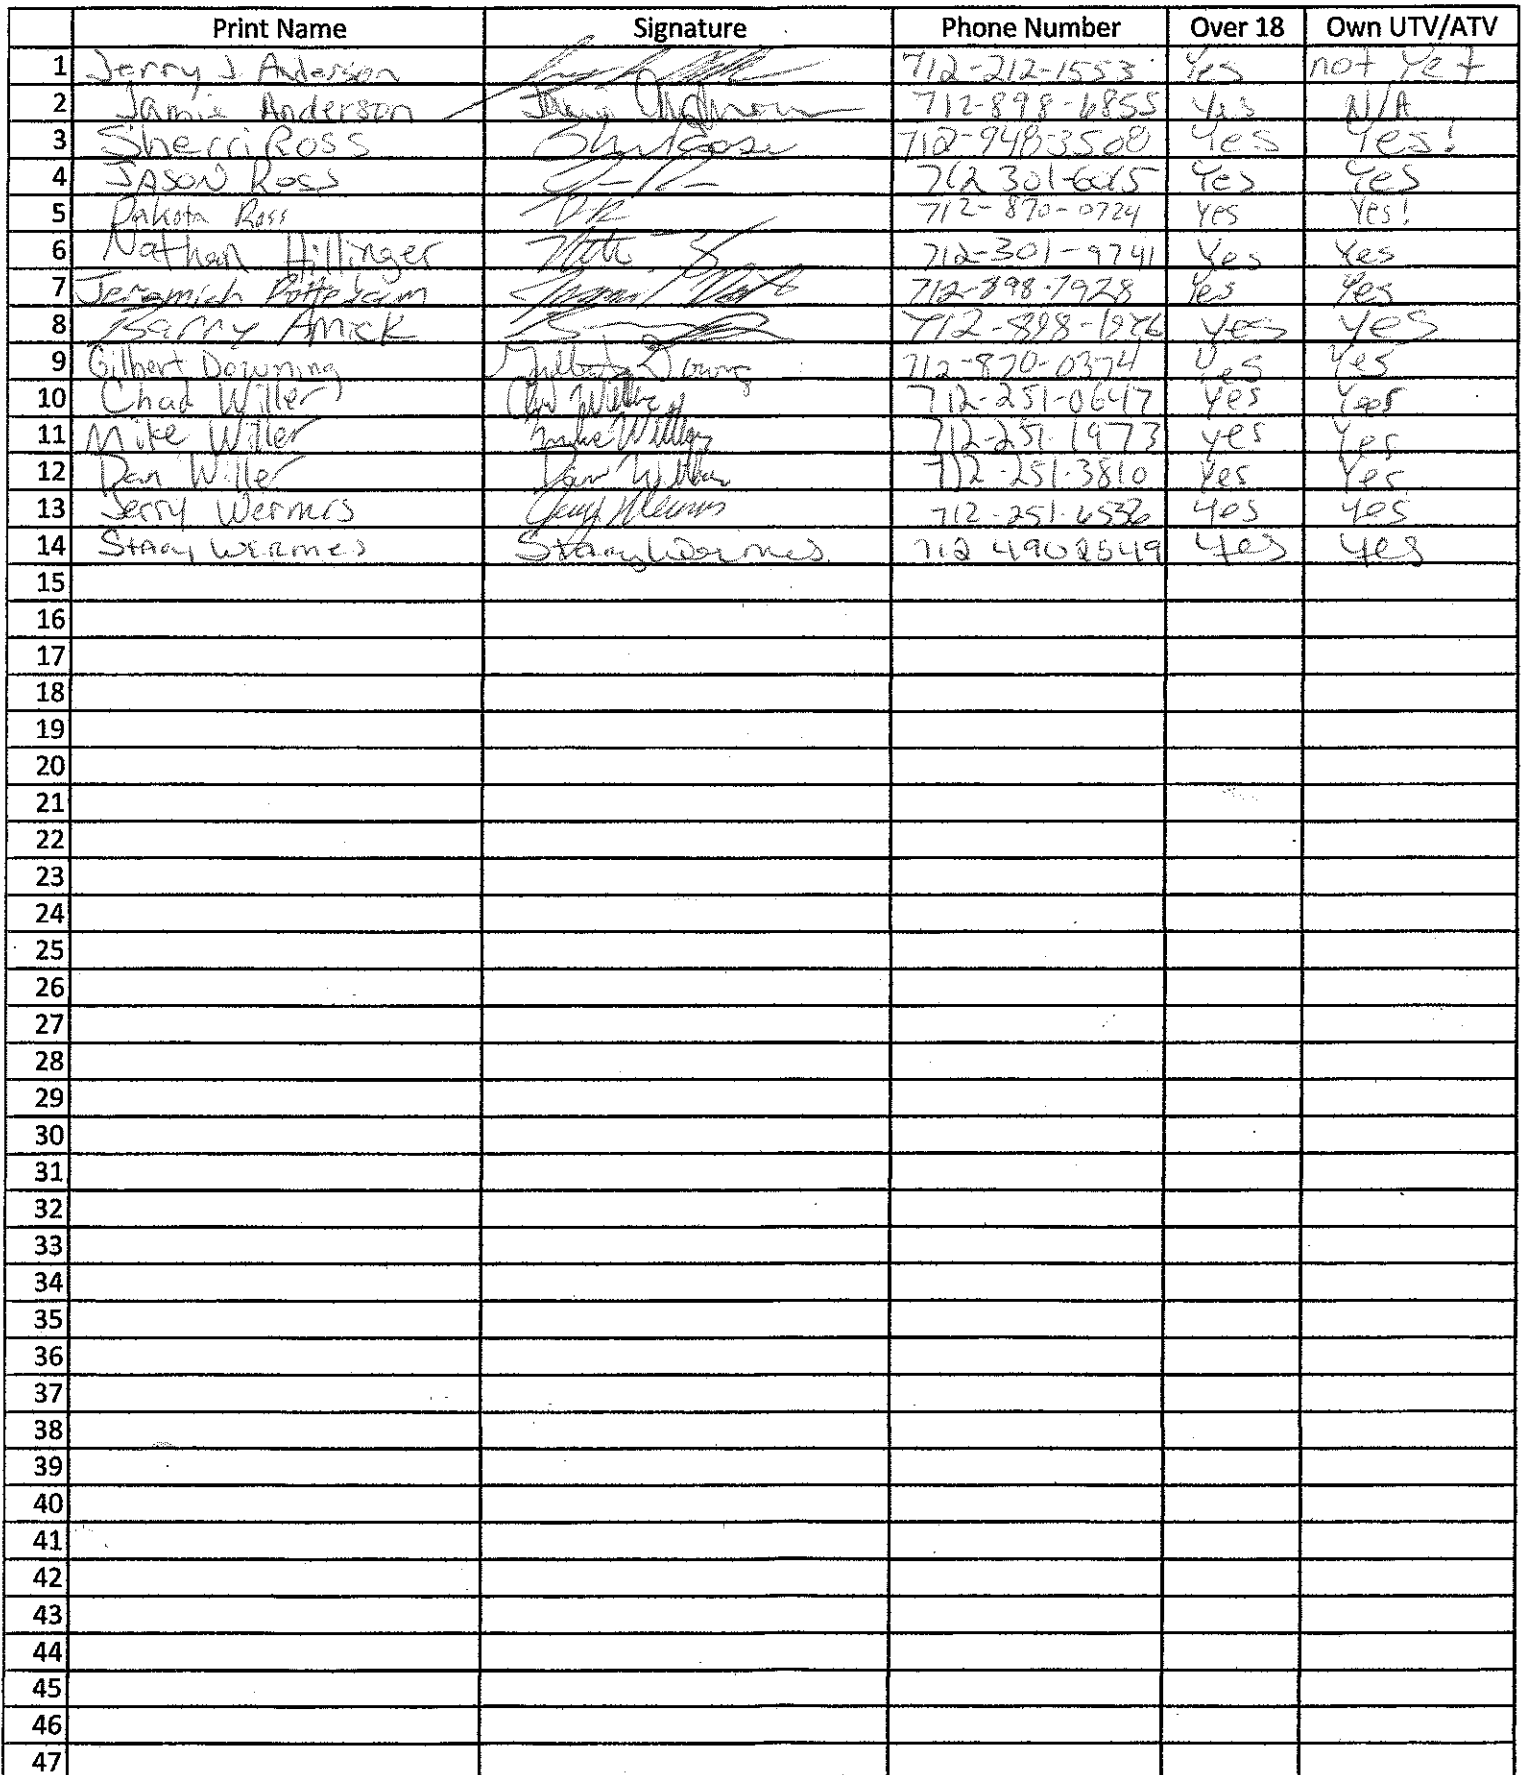 Print Name Signature Phone Number Over 18 Own UTV/ATV
1 Jerry J. Anderson 712-212-1553 Yes not Yet
2 Jamie Anderson 712-898-6855 Yes N/A
3 Sherri Ross 712-948-3508 Yes Yes!
4 JASON Ross 712 301-6015 Yes Yes
5 Dakota Ross DR 712-870-0724 Yes Yes!
6 Nathan Hillinger 712-301-9741 Yes Yes
7 712-898-7928 Yes Yes
8 Barry Amick 712-898-1976 yes yes
9 Gilbert Downing 712-870-0374 Yes Yes
10 Chad Willer 712-251-0647 Yes Yes
11 Mike Willer Mike Willer 712-251-1973 yes Yes
12 Dan Willer Dan Willer 712-251-3810 Yes Yes
13 Jerry Wermers 712-251-6536 yes yes
14 Stacy Wermes Stacy Wermes 712 4902549 yes yes
15
16
17
18
19
20
21
22
23
24
25
26
27
28
29
30
31
32
33
34
35
36
37
38
39
40
41
42
43
44
45
46
47